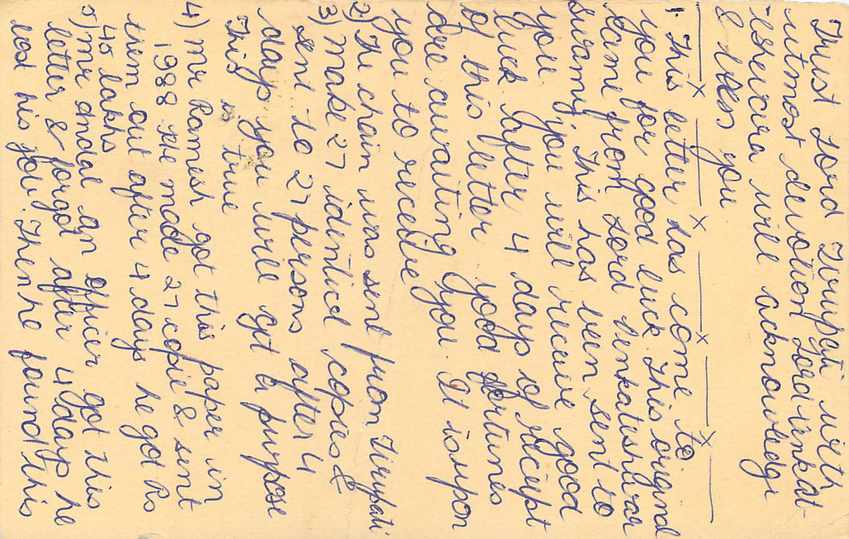 Trust Lord Tirupati with
utmost devotion Lord Venkat-
eshwara will acknowledge
& bless you
x x x x
1. This letter has come to
you for good luck. This original
came from Lord Venkateshwar
Swamy, This has been sent to
you. You will receive good
luck after 4 days of reciept
of this letter good fortunes
are awaiting you. It is upon
you to receive
2) The chain was sent from Tirupati
3) make 27 identical copies &
sent to 27 persons after 4
days you will get a purpose
This is true
4) Mr Ramesh got this paper in
1988 He made 27 copie & sent
them out after 4 days he got Rs
45 lakhs
5) Mr andal an officer got this
letter & forgot after 4 days he
lost his job. Then he found this